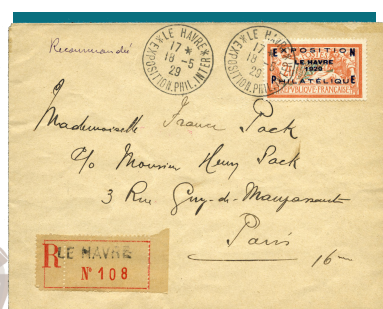 Recommandée
★ LE HAVRE ★
17 *
18 - 5
29
EXPOSITION.PHIL.INTER
★ LE HAVRE
17
18 - 5
29
EXPOSITION.PHIL.
EXPOSITION
LE HAVRE
1929
PHILATELIQUE
REPUBLIQUE FRANÇAISE
Mademoiselle France Pack
c/o Monsieur Henry Pack
3 Rue Guy-de-Maupassant
Paris
16me
R LE HAVRE
N° 108